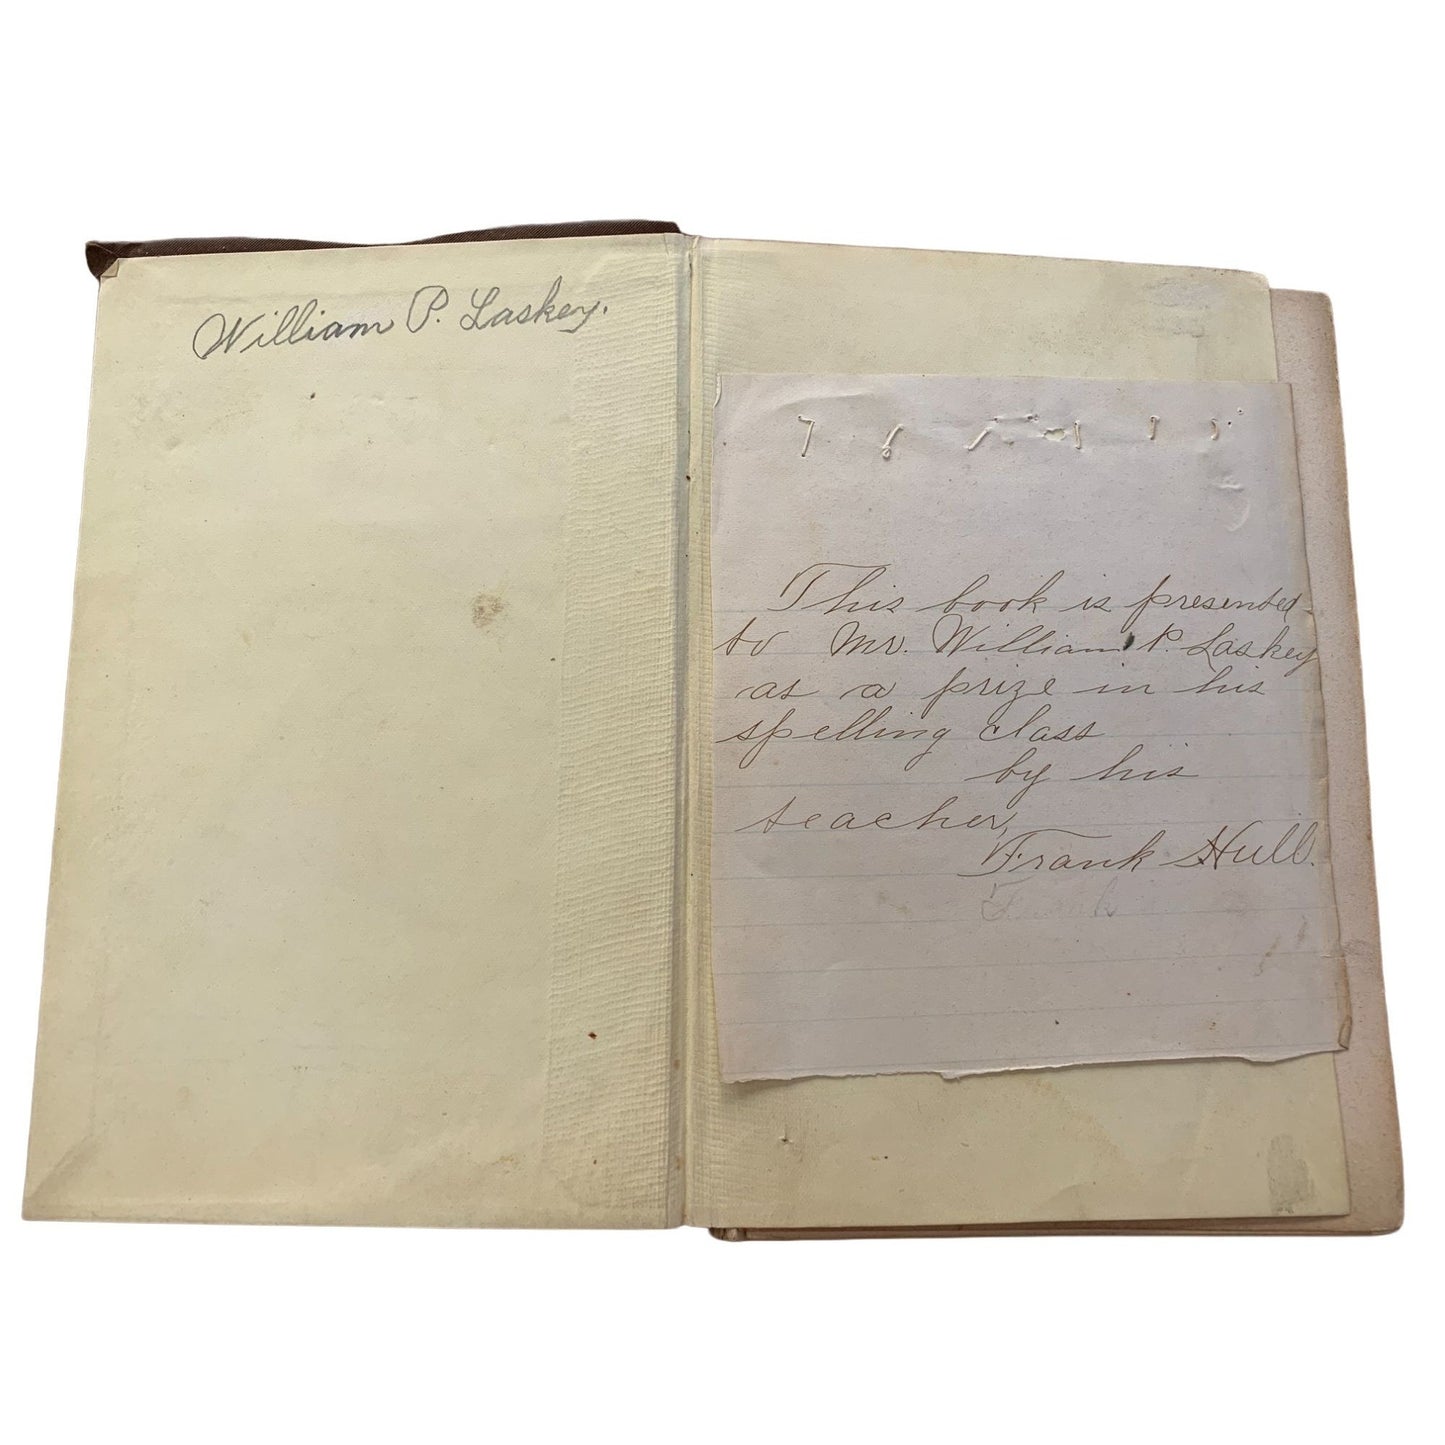 William P. Laskey.
This book is presented
to Mr. William P. Laskey
as a prize in his
spelling class
by his
teacher,
Frank Hull.
Frank